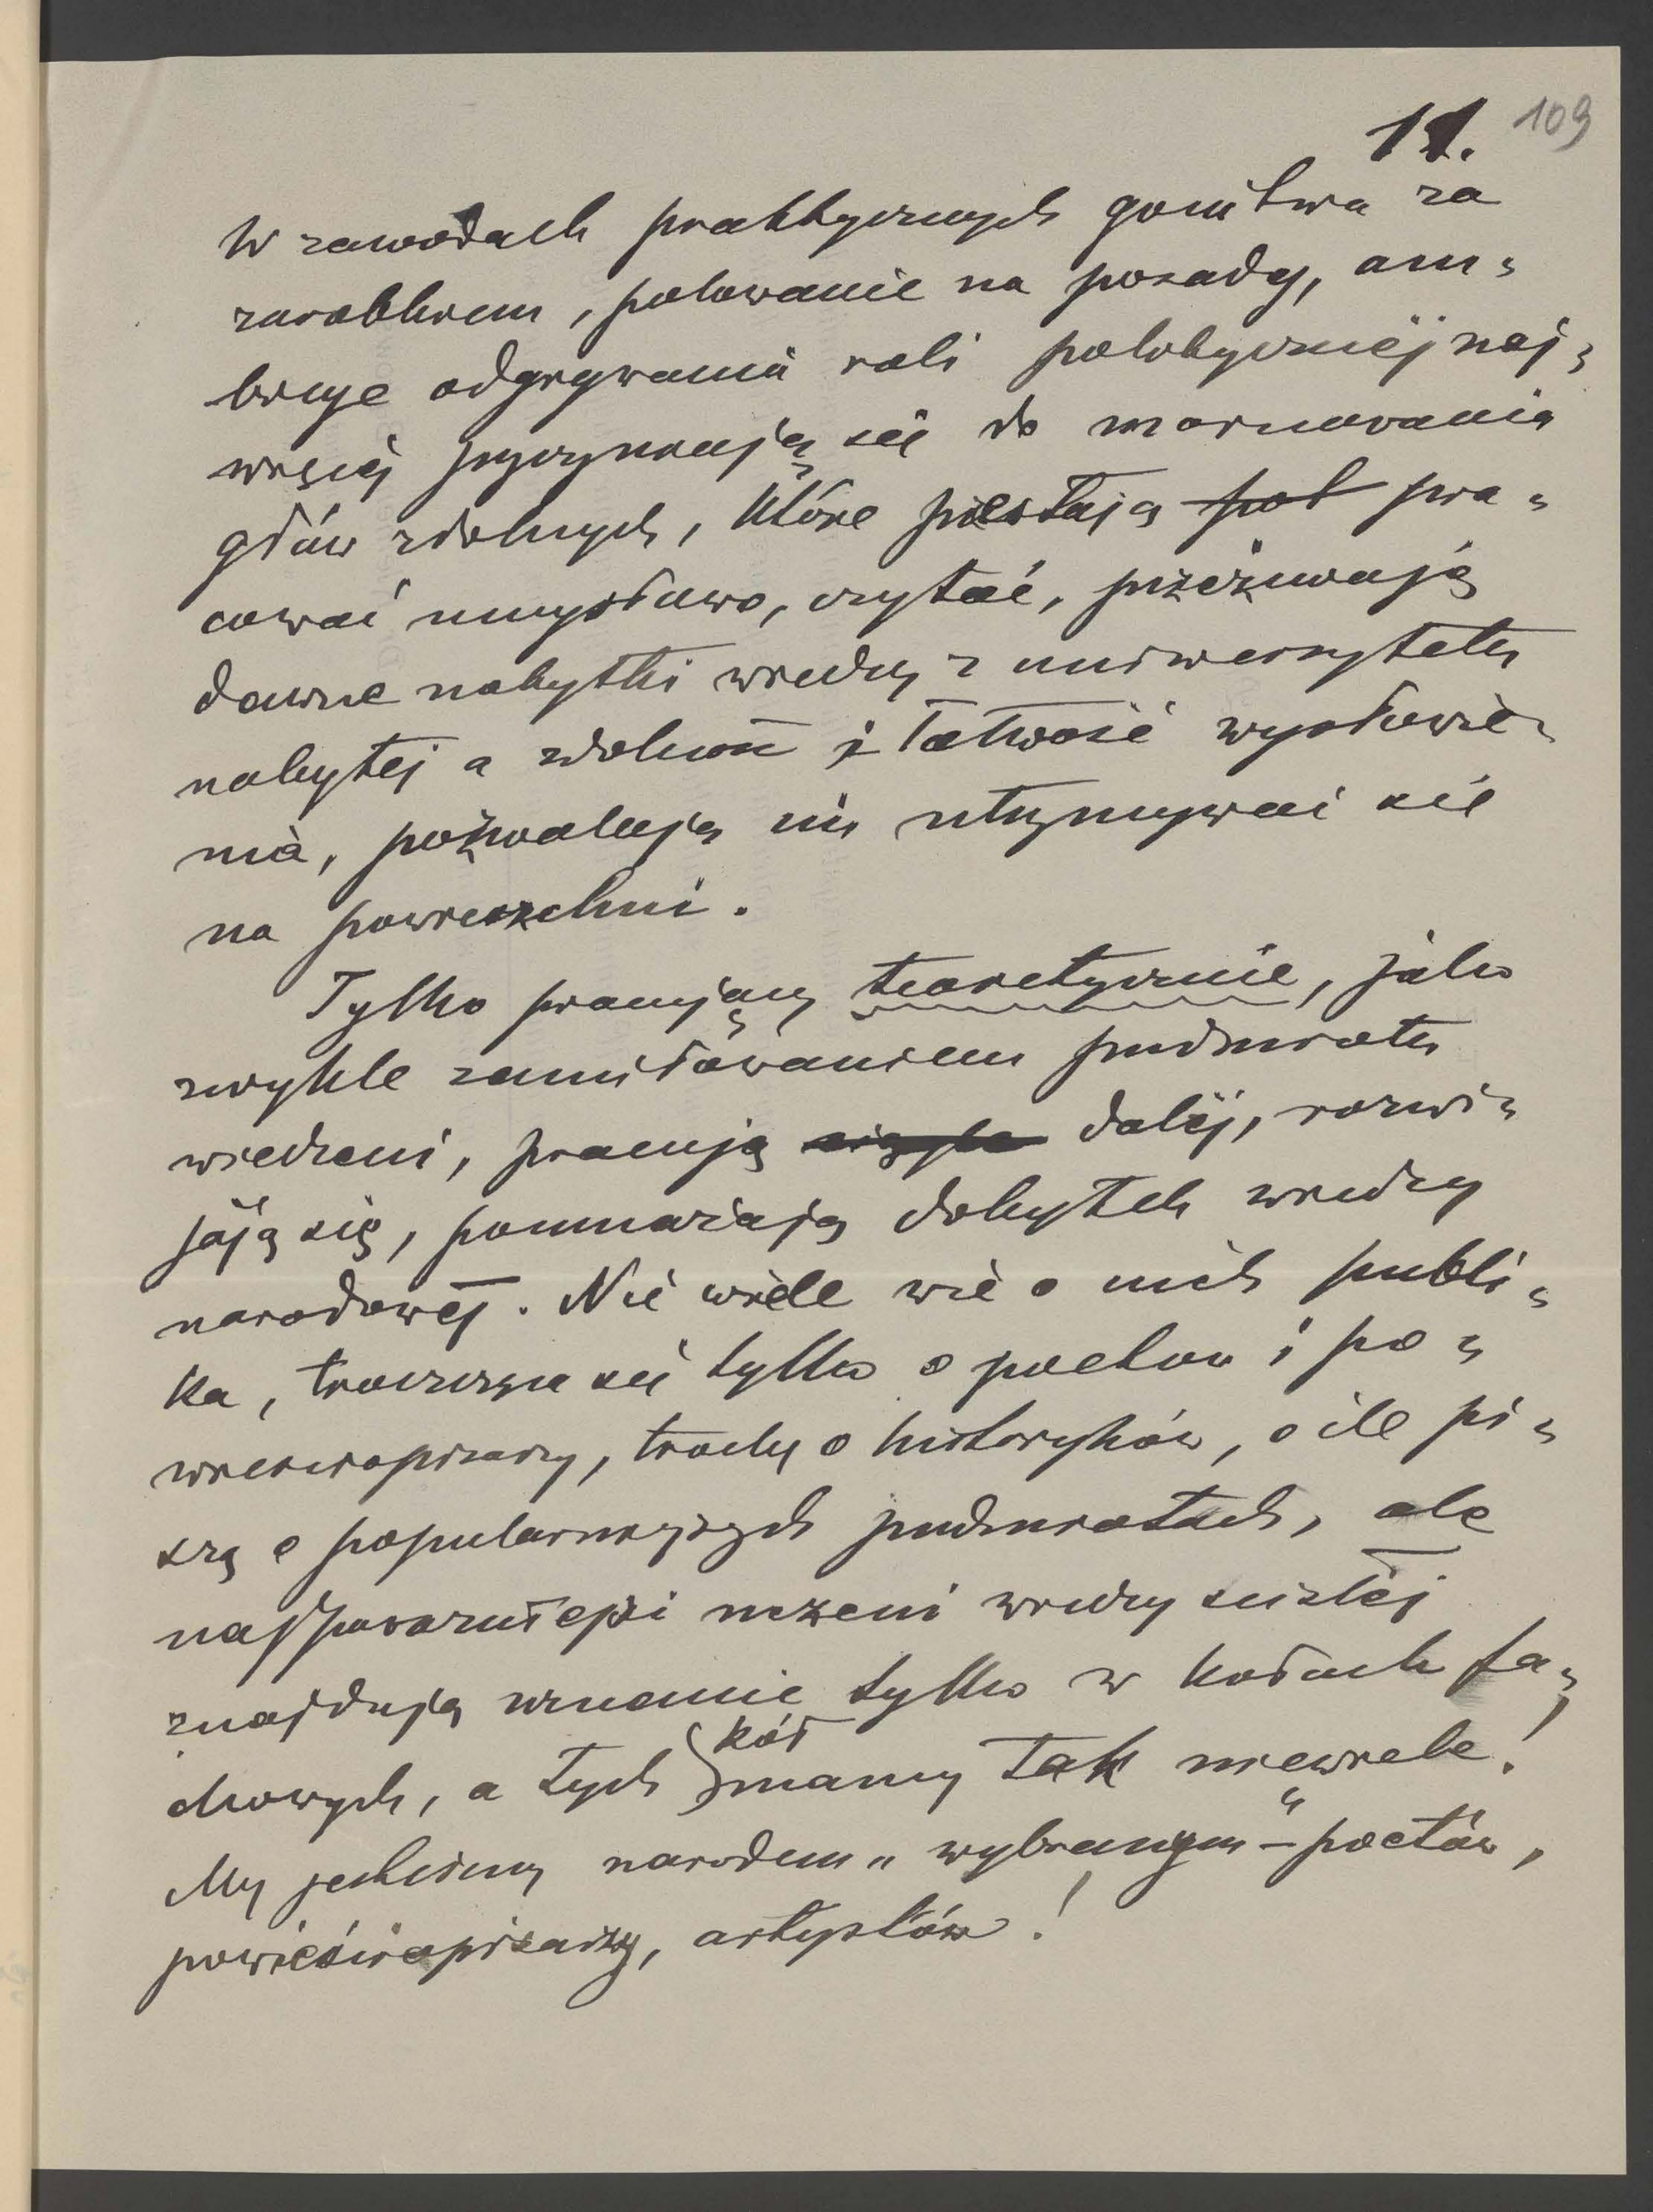 11. 109
W zawodach praktycznych gonitwa za
zarobkiem, polowanie na posady, am=
bicye odgrywania roli politycznéj naj=
więcéj przyczyniają się do marnowania
głów zdolnych, które przestają pra=
cować umysłowo, czytać, przeżuwają
dawne nabytki wiedzy z uniwersytetu
nabytéj a zdolność i łatwość wysłowie=
nia, pozwalają im utrzymywać się
na powierzchni.
Tylko pracujący teoretycznie, jako
zwykle zamiłowaniem przedmiotu
wiedzeni, pracują daléj, rozwi=
jają się, pomnażają dobytek wiedzy
narodowéj. Nie wiele wie o nich publi=
ka, troszcząca się tylko o poetów i po=
wieściopisarzy, trochę o historyków, o ile pi=
szą o popularniejszych przedmiotach, ale
najpoważniejsi uczeni wiedzy ścisłéj
znajdują uznanie tylko w kołach fa=
chowych, a tych kół mamy tak niewiele!
My jesteśmy narodem „wybranym“ – poetów,
powieściopisarzy, artystów!